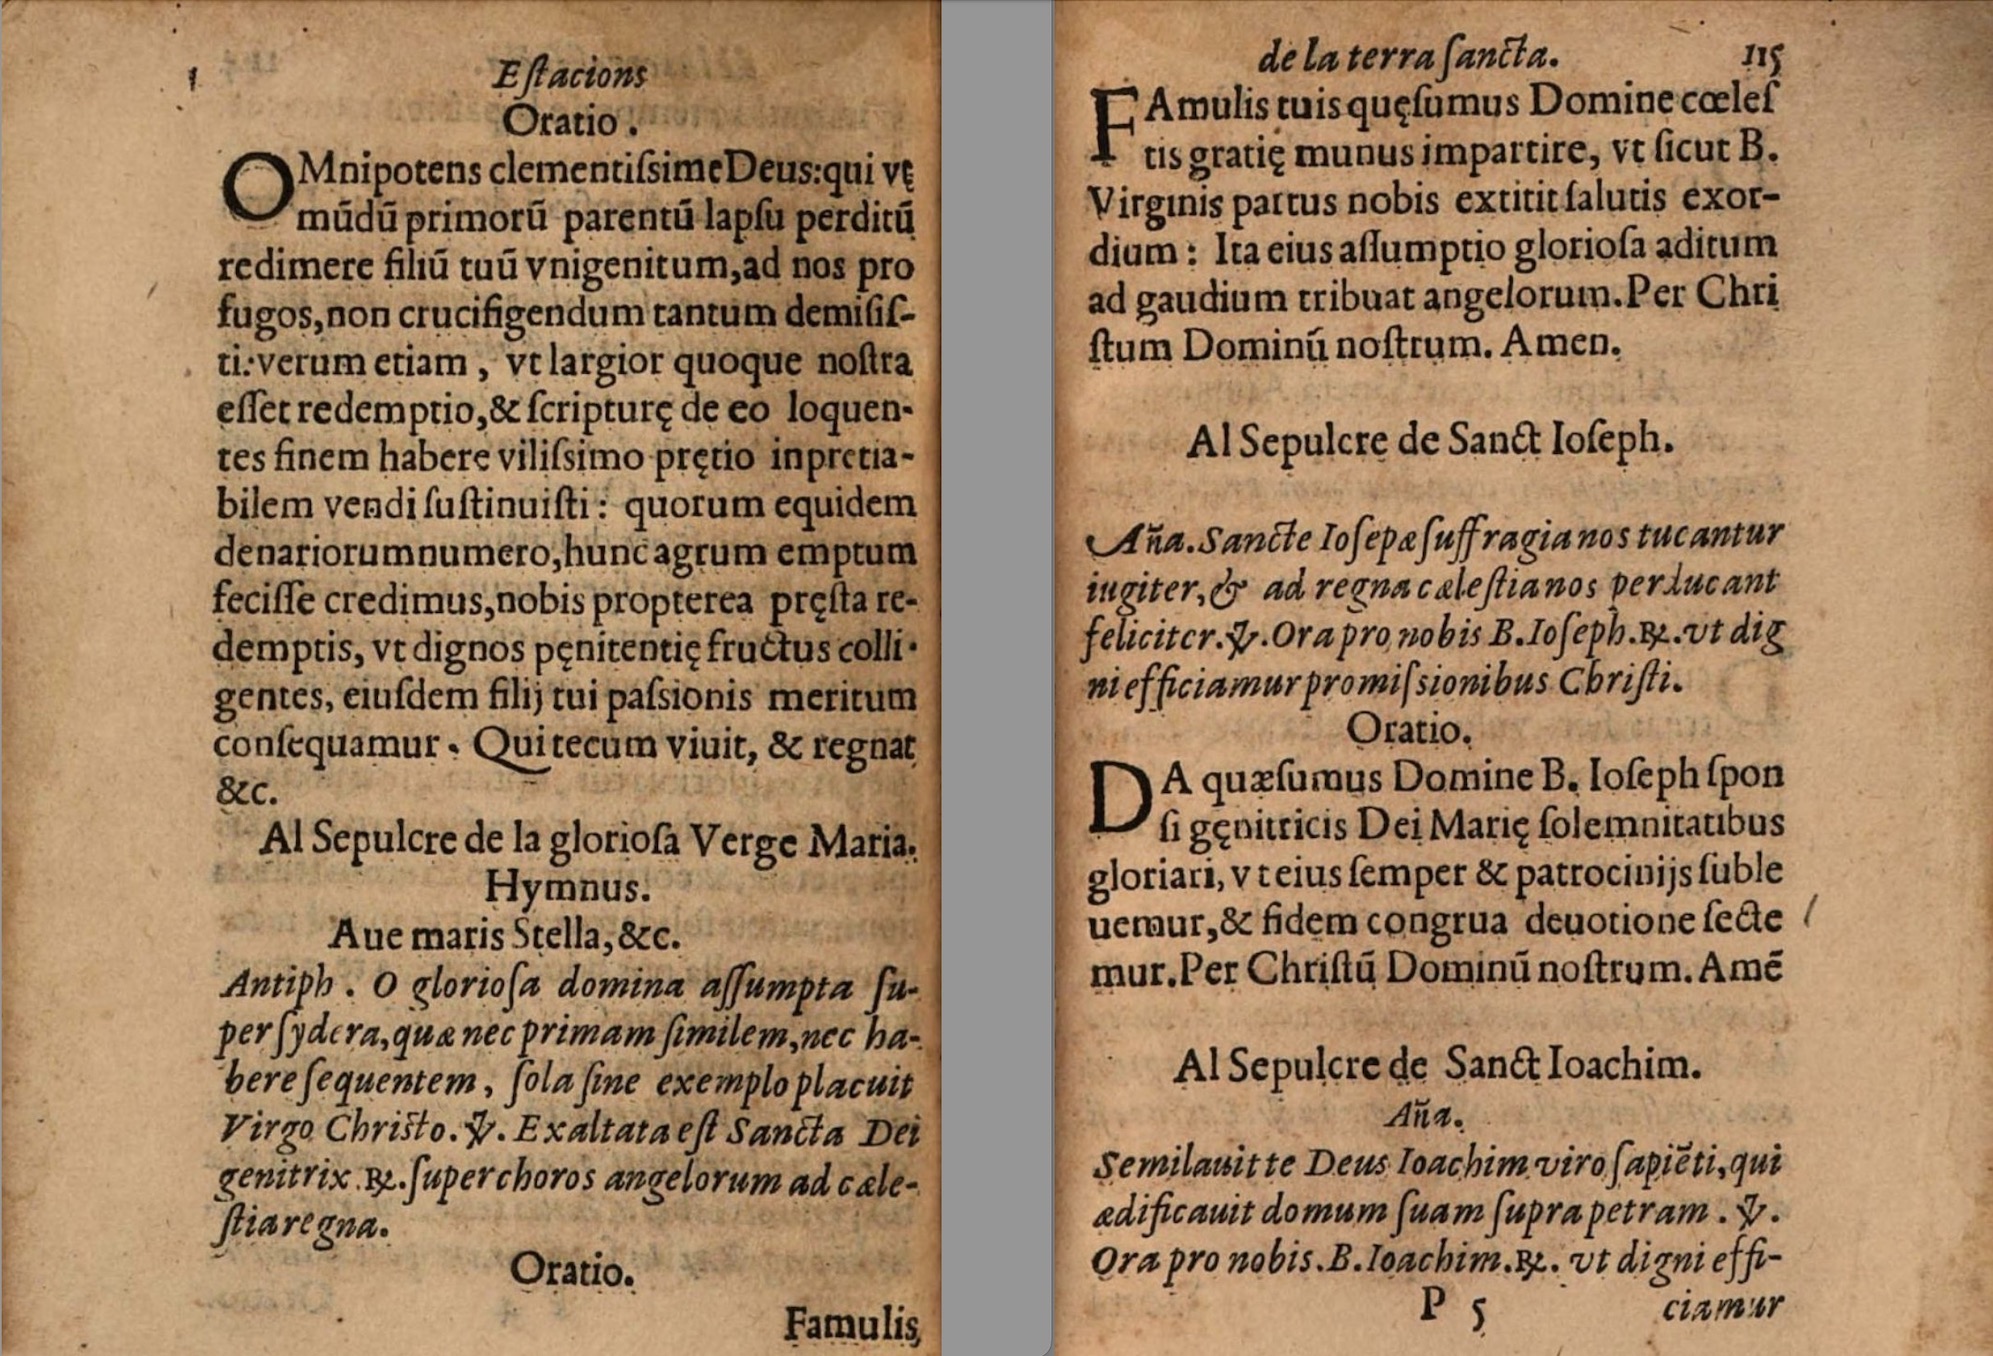 Estacions
Oratio.
OMnipotens clementiſsime Deus: qui vt
mũdũ primorũ parentũ lapſu perditũ
redimere filiũ tuũ vnigenitum, ad nos pro
fugos, non crucifigendum tantum demiſiſ-
ti: verum etiam, vt largior quoque noſtra
eſſet redemptio, & ſcripturę de eo loquen-
tes finem habere viliſsimo prętio inpretia-
bilem vendi ſuſtinuiſti: quorum equidem
denariorum numero, hunc agrum emptum
feciſſe credimus, nobis propterea pręſta re-
demptis, vt dignos pęnitentię fructus colli-
gentes, eiuſdem filij tui paſsionis meritum
conſequamur. Qui tecum viuit, & regnat
&c.
Al Sepulcre de la glorioſa Verge Maria.
Hymnus.
Aue maris Stella, &c.
Antiph. O glorioſa domina aſſumpta ſu-
per ſydera, quæ nec primam ſimilem, nec ha-
bere ſequentem, ſola ſine exemplo placuit
Virgo Chriſto. ℣. Exaltata eſt Sancta Dei
genitrix ℟. ſuper choros angelorum ad cæle-
ſtia regna.
Oratio.
Famulis
de la terra ſancta. 115
FAmulis tuis quęſumus Domine cœleſ
tis gratię munus impartire, vt ſicut B.
Virginis partus nobis extitit ſalutis exor-
dium: Ita eius aſſumptio glorioſa aditum
ad gaudium tribuat angelorum. Per Chri
ſtum Dominũ noſtrum. Amen.
Al Sepulcre de Sanct Ioſeph.
Añа. Sancte Ioſepæ ſuffragia nos tucantur
iugiter, & ad regna cæleſtia nos perducant
feliciter. ℣. Ora pro nobis B. Ioſeph. ℟. vt dig
ni efficiamur promiſsionibus Chriſti.
Oratio.
DA quæſumus Domine B. Ioſeph ſpon
ſi gęnitricis Dei Marię ſolemnitatibus
gloriari, vt eius ſemper & patrocinijs ſuble
uemur, & fidem congrua deuotione ſecte
mur. Per Chriſtũ Dominũ noſtrum. Amẽ
Al Sepulcre de Sanct Ioachim.
Aña.
Semilauit te Deus Ioachim viro ſapiẽti, qui
ædificauit domum ſuam ſupra petram. ℣.
Ora pro nobis. B. Ioachim. ℟. vt digni effi-
P 5 ciamur